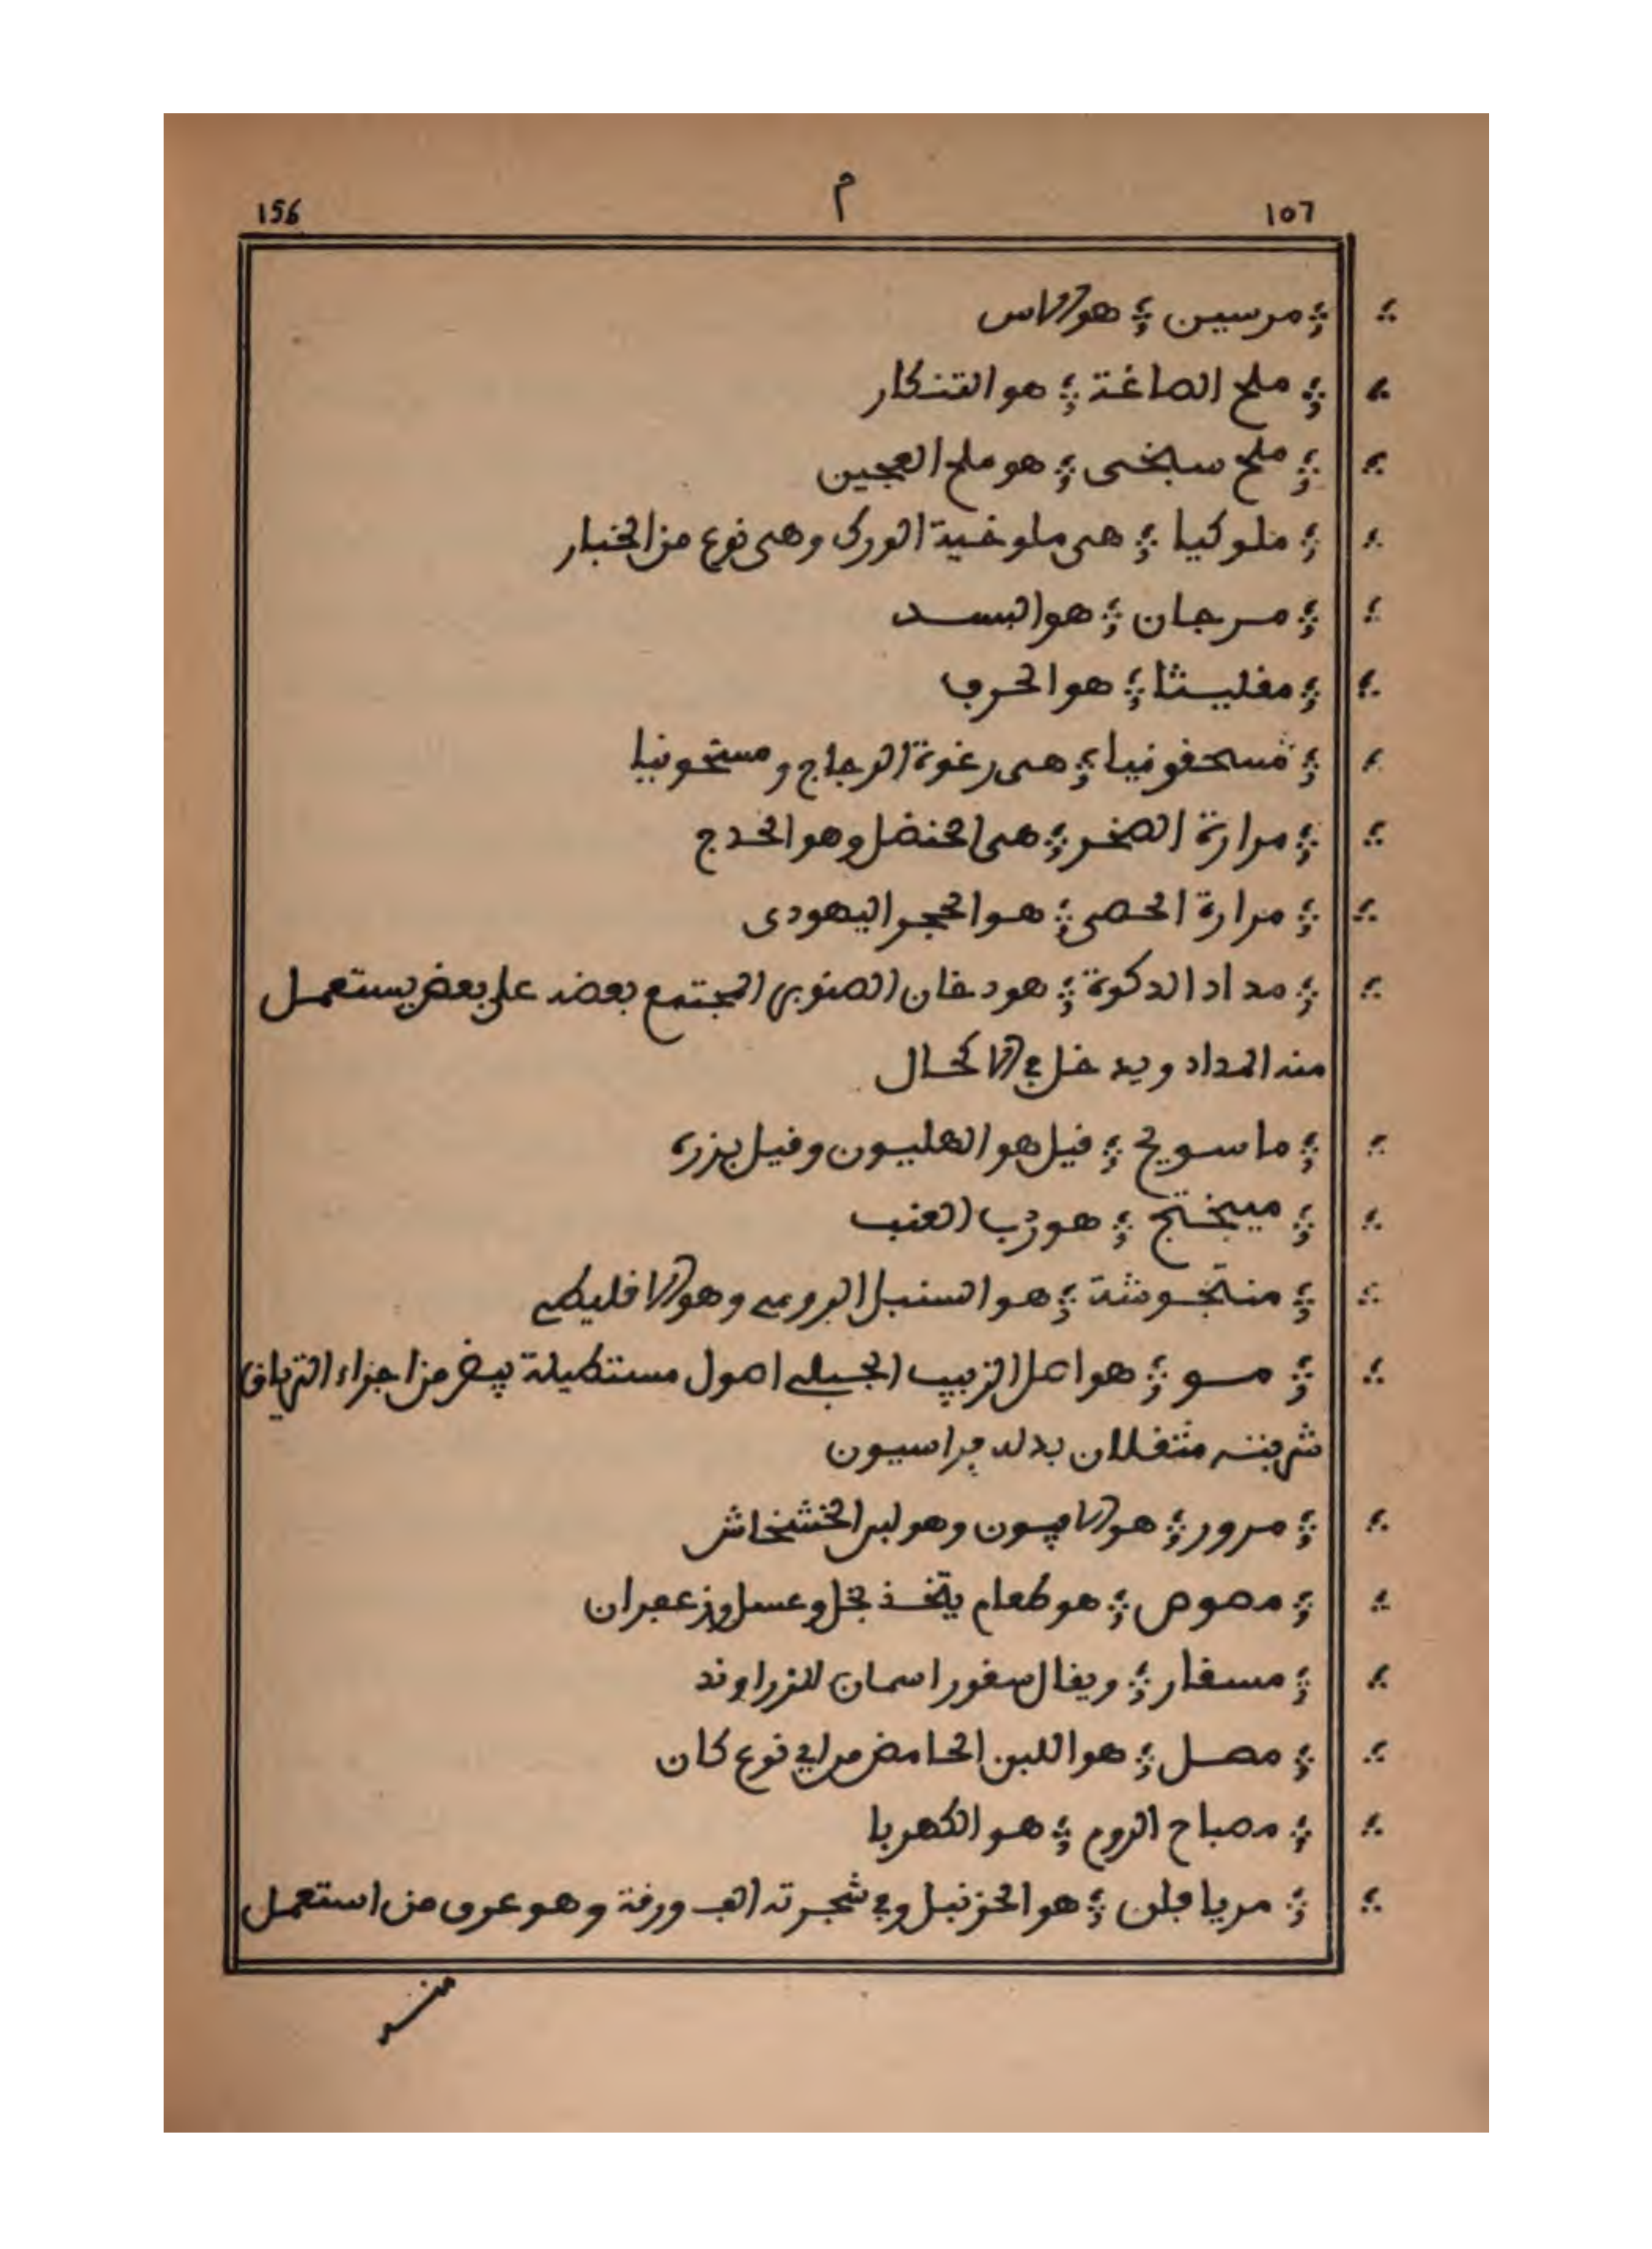 156 م ١٥٦
مرسين هو الاس
ملح الصاغة هو التنكار
ملح سبخى هو ملح العجين
ملوكيا هى ملوخية الورك وهى نوع من الخبار
مرجان هو البسد
مقليثا هو الحرف
مسحقونيا هى رغوة الزجاج و مسحونيا
مرارة الصخر هى الحنضل وهو الحدج
مرارة الحصى هو الحجر اليهودى
مداد الدكوة هو دخان الصنوبر المجتمع بعضه على بعض يستعمل
منه المداد ويدخل في الاكحال
ماسويح قيل هو الهليون وقيل بزره
ميبختج هو رُب العنب
منتجوشة هو السنبل الرومي وهو الاقليطي
مسو هو اصل الزبيب الجبلي اصول مستطيلة بيض من اجزاء الترياق
شربته مثقلان بدله فراسيون
مرور هو الافيون وهو لبن الخشخاش
مصوص هو طعام يتخذ بخل وعسل وزعفران
مسقار ويقال سقور اسمان للزراوند
مصل هو اللبن الحامض من اي نوع كان
مصباح الروم هو الكهربا
مريافلن هو الحزنبل وفي شجرته الف ورقة وهو عرق من استعمل
منـه